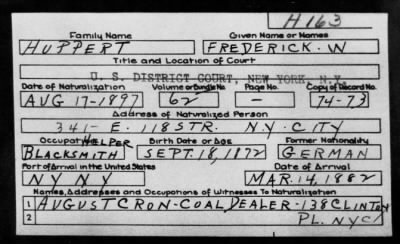 H 163
Family Name Given Name or Names
HUPPERT FREDERICK. W
Title and Location of Court
U. S. DISTRICT COURT, NEW YORK, N.Y.
Date of Naturalization Volume or Bundle No. Page No. Copy of Record No.
AUG 17-1897 62 — 74-73
Address of Naturalized Person
341- E. 118 STR. N.Y. CITY
Occupation HELPER Birth Date or Age Former Nationality
BLACKSMITH SEPT. 18, 1872 GERMAN
Port of Arrival in the United States Date of Arrival
N Y N Y MAR. 14, 1882
Names, Addresses and Occupations of Witnesses To Naturalization
1 AUGUST CRON-COAL DEALER-138 CLINTON
2 PL. NYC